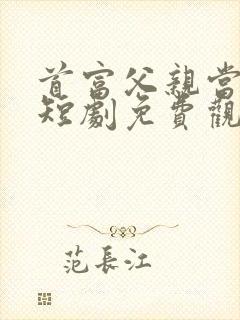 首富父親當
短劇免費觀
范長江